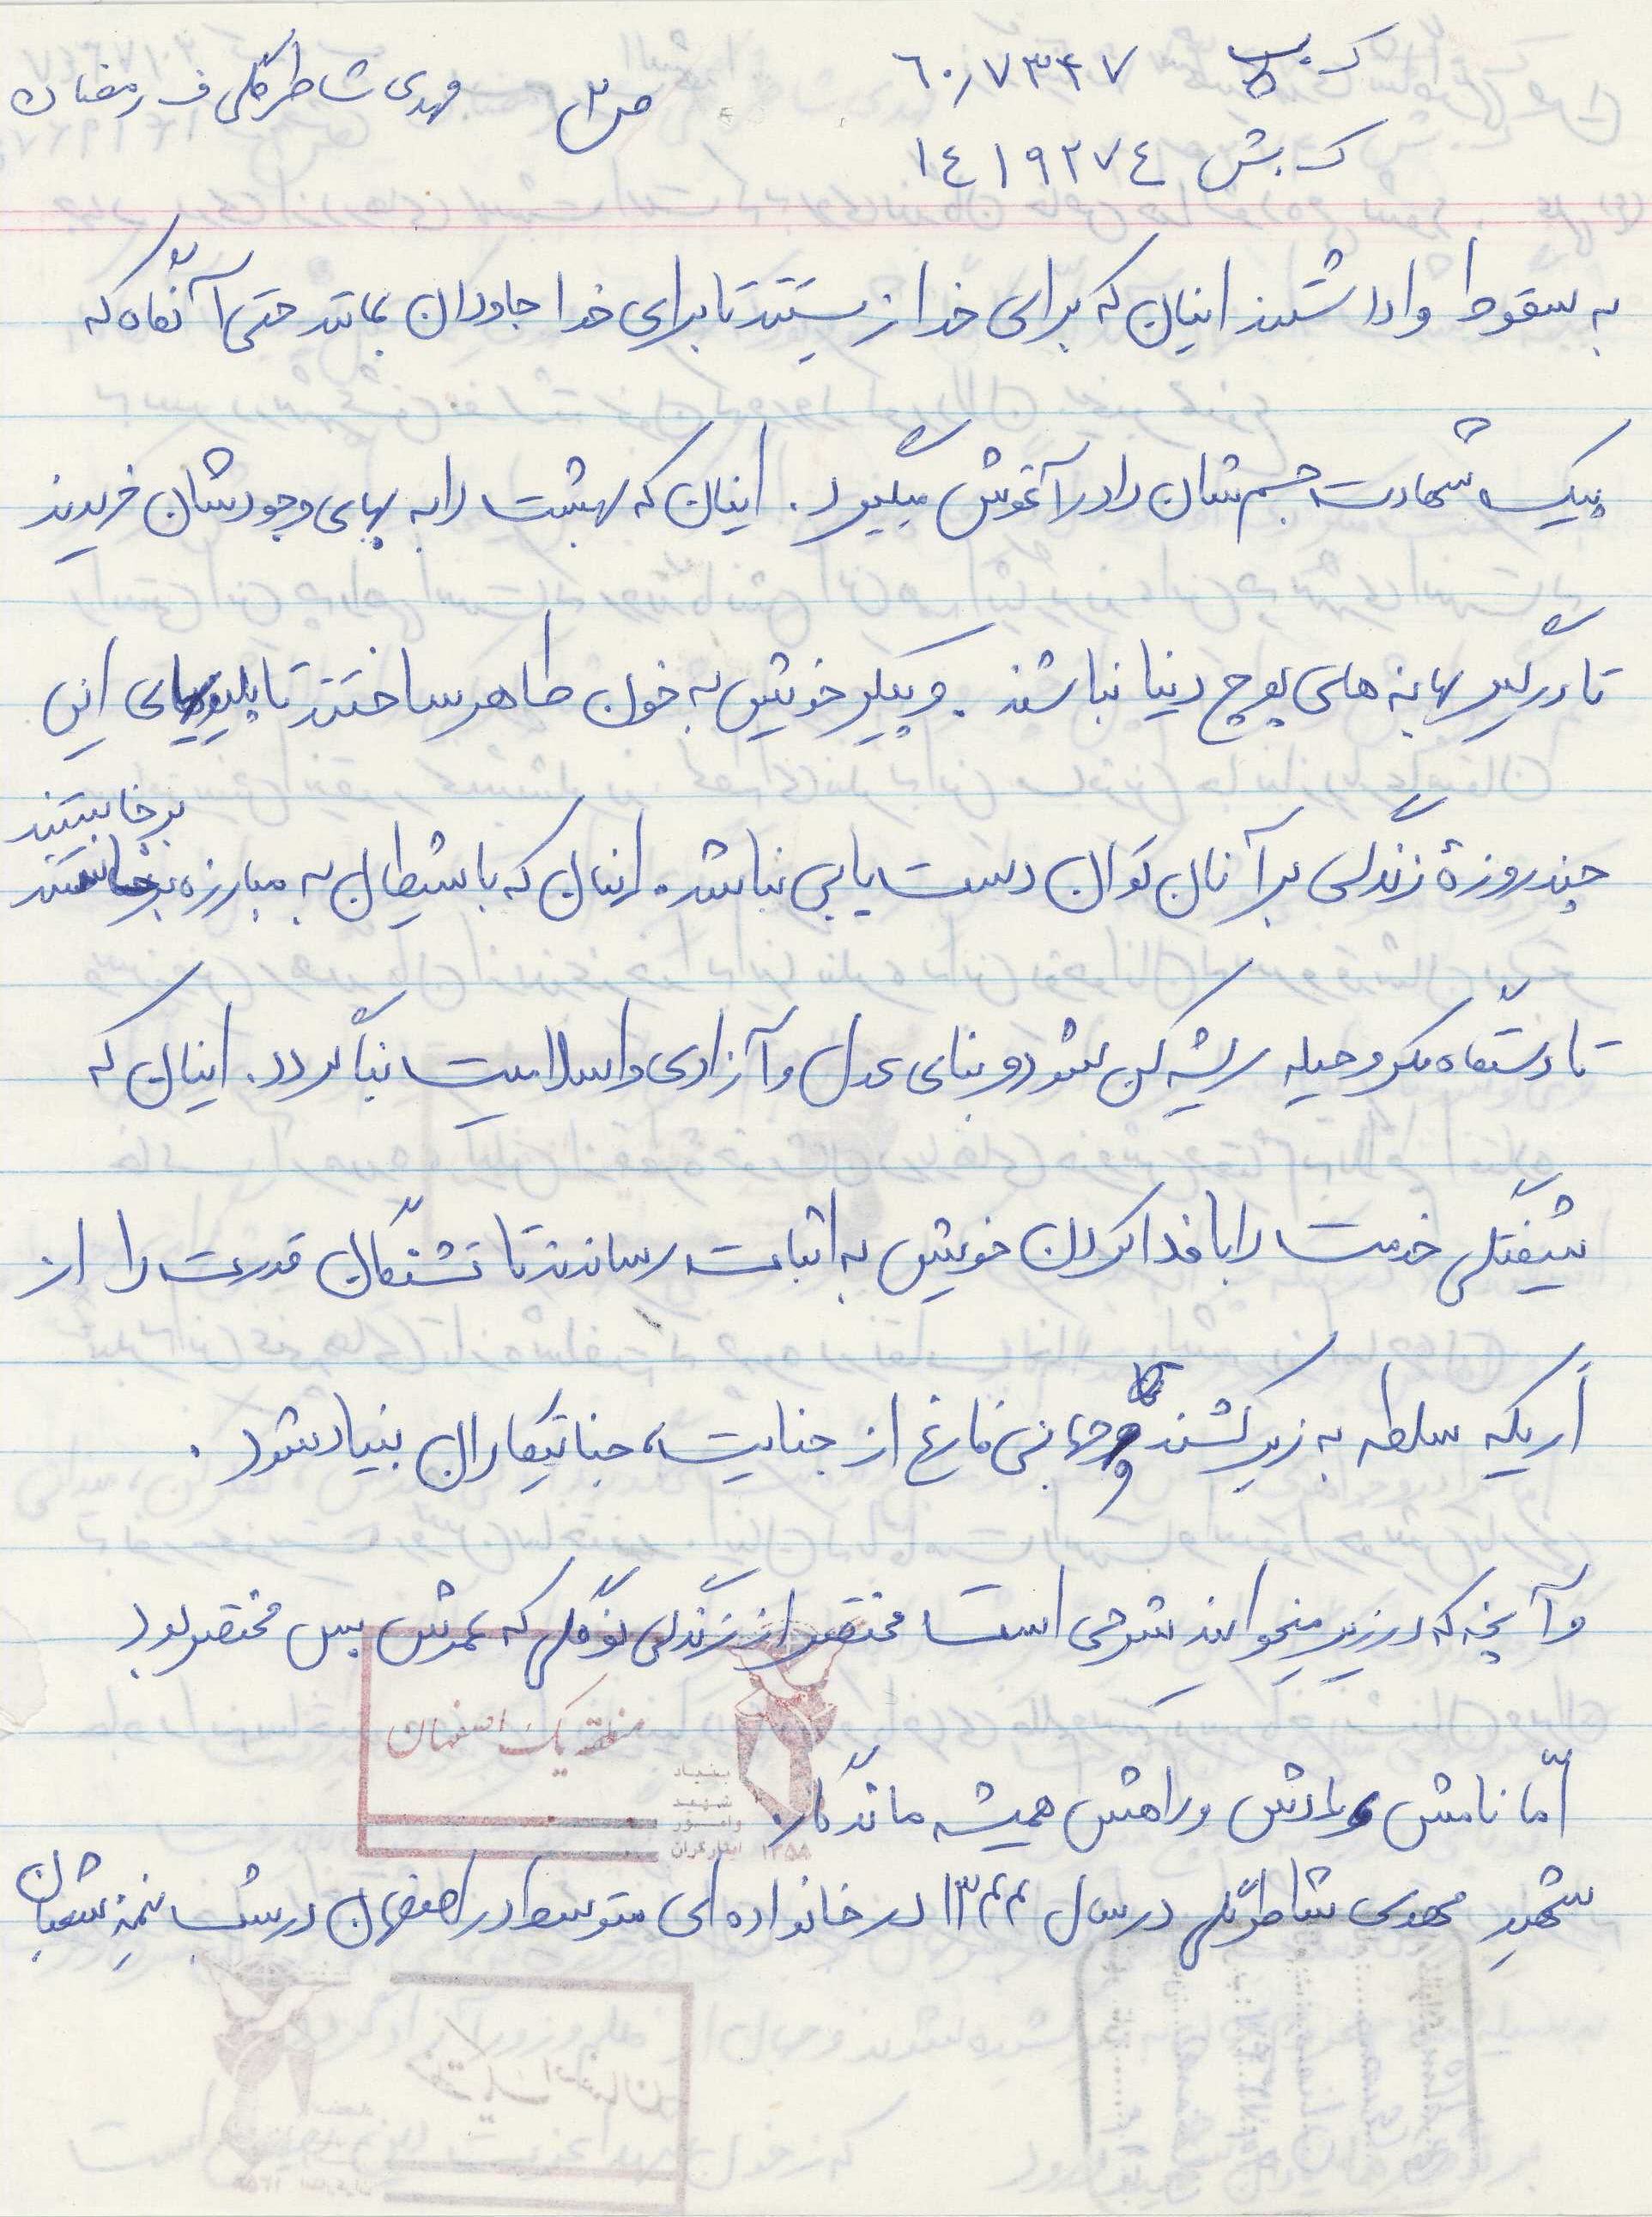 ک.ب ٦٠/٧٣٤٧
ص ٣ مهدی شاطرگلی ف رمضان
ک.ش ١٤١٩٢٧٤
به سقوط وا داشتند اینان که برای خدا زیستند تا برای خدا جاودان بمانند حتی آنگاه که
پیک شهادت جسم شان را در آغوش میگیرد. اینان که بهشت را به بهای وجودشان خریدند
تا درگیر بهانه های پوچ دنیا نباشند. و پیکر خویش به خون طاهر ساختند تا پلیدیهای این
چند روزهٔ زندگی بر آنان توان دست یابی نباشد. اینان که با شیطان به مبارزه برخاستند
تا دستگاه مکر و حیله ریشه کن شود و بنای عدل و آزادی و اسلامیت بنا گردد. اینان که
شیفتگی خدمت را با فدا کردن خویش به اثبات رساندند تا تشنگان قدرت را از
اریکه سلطه به زیر کشند و جهانی فارغ از جنایت، جنایتکاران بنیاد شود.
و آنچه که در زیر میخوانید شرحی است مختصر از زندگی نوگلی که عمرش بس مختصر بود
امّا نامش و یادش و راهش همیشه ماندگار.
منطقه یک اصفهان
بنیاد
شهید
و امور
ایثارگران
١٣٥٨
شهید مهدی شاطرگلی در سال ١٣۴۴ در خانواده ای متوسط در اصفهان در شب نیمهٔ شعبان